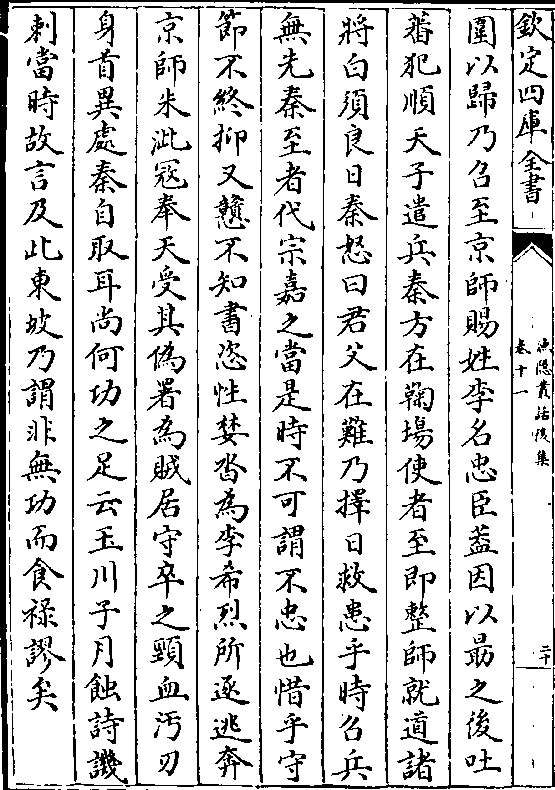 欽定四庫全書
漁隱叢話後集
卷十一
二十
圍以歸乃召至京師賜姓李名忠臣葢因以朂之後吐
蕃犯順天子遣兵秦方在鞠場使者至即整師就道諸
將白須良日秦怒曰君父在難乃擇日救患乎時召兵
無先秦至者代宗嘉之當是時不可謂不忠也惜乎守
節不終抑又戇不知書恣性婪沓為李希烈所逐逃奔
京師朱泚冦奉天受其偽署為賊居守卒之頸血汚刃
身首異處秦自取耳尚何功之足云玉川子月蝕詩譏
刺當時故言及此東坡乃謂非無功而食祿謬矣